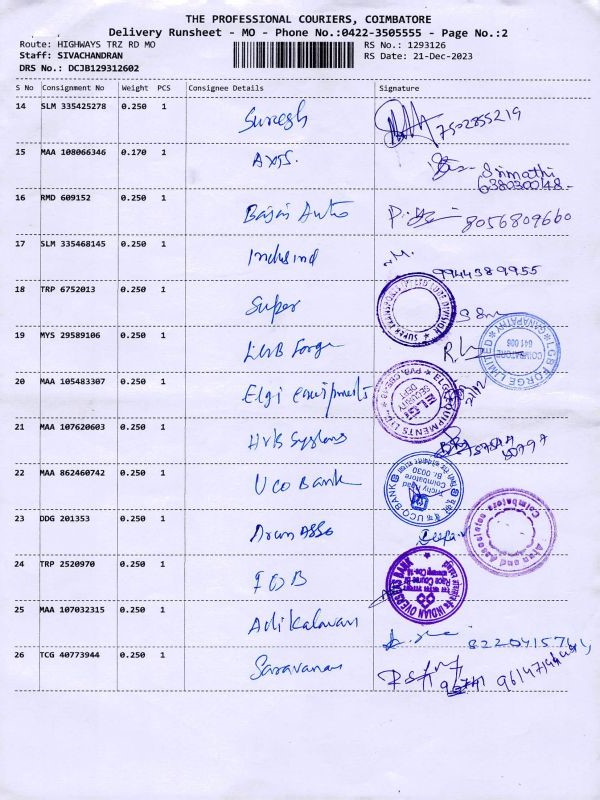 THE PROFESSIONAL COURIERS, COIMBATORE
Delivery Runsheet - MO - Phone No.:0422-3505555 - Page No.:2
Route: HIGHWAYS TRZ RD MO
RS No.: 1293126
Staff: SIVACHANDRAN
RS Date: 21-Dec-2023
DRS No.: DCJB129312602
S No Consignment No Weight PCS Consignee Details Signature
14 SLM 335425278 0.250 1 Suresh 7502855219
15 MAA 108066346 0.170 1 Axis. Srimathi
16 RMD 609152 0.250 1 Bajaj Auto 8056809660
17 SLM 335468145 0.250 1 Indusind 9944389955
18 TRP 6752013 0.250 1 Super
19 MYS 29589106 0.250 1 LGB Forge
LGB FORGE LIMITED
GANAPATHY
COIMBATORE
641 006
20 MAA 105483307 0.250 1 Elgi equipments
ELGI EQUIPMENTS LTD.
SECURITY
DEPT
21 MAA 107620603 0.250 1 Systems
22 MAA 862460742 0.250 1 UCO Bank
UCO BANK
Trichy Road
Coimbatore
Br. 0030
23 DDG 201353 0.250 1 Arun Asso
Arun and Associates
Coimbatore
24 TRP 2520970 0.250 1 IOB
INDIAN OVERSEAS BANK
25 MAA 107032315 0.250 1 Adikalavan
26 TCG 40773944 0.250 1 Saravanan